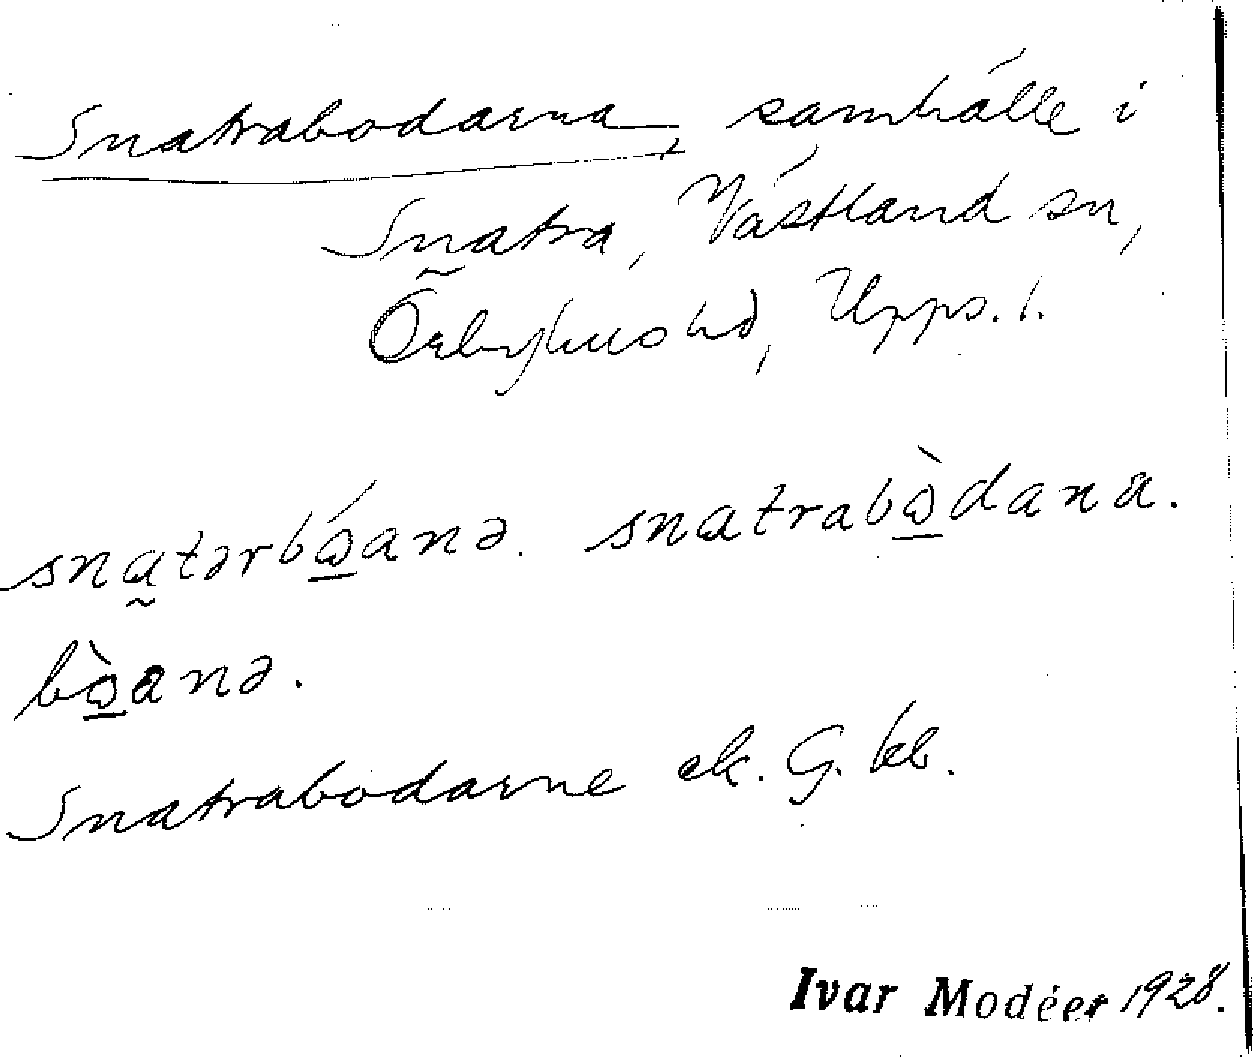 Snatrabodarna, samhälle i
Snatra, Västland sn,
Örbyhus hd, Upps. l.
snatərbώanə. snatrabὼdana.
bὼanə.
Snatrabodarne ek. G. kb.
Ivar Modéer 1928.